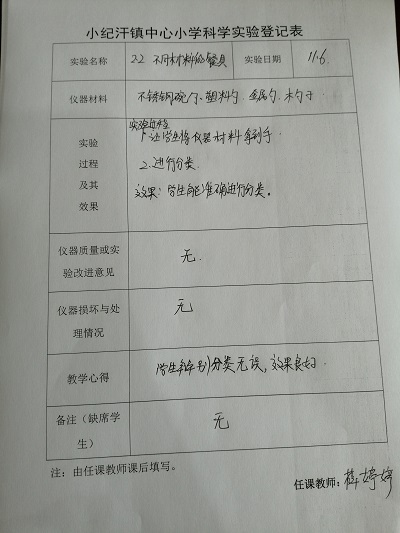 小纪汗镇中心小学科学实验登记表
实验名称 2.2 不同材料的餐具 实验日期 11.6
仪器材料 不锈钢碗勺、塑料勺、金属勺、木勺子
实验过程及其效果
实验过程
1. 让学生将仪器材料拿到手
2. 进行分类.
效果: 学生能准确进行分类。
仪器质量或实验改进意见 无.
仪器损坏与处理情况 无
教学心得 学生辨别分类无误,效果良好.
备注(缺席学生) 无
注:由任课教师课后填写。
任课教师: 婷婷